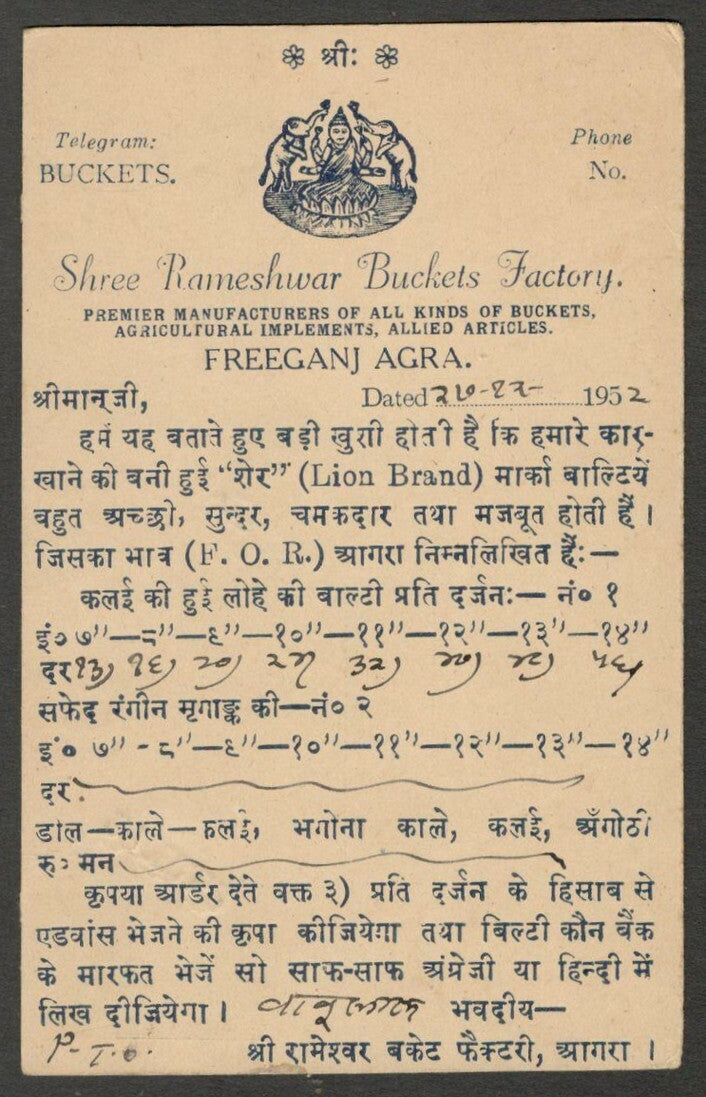 श्रीः
Telegram:
BUCKETS.
Phone
No.
Shree Rameshwar Buckets Factory.
PREMIER MANUFACTURERS OF ALL KINDS OF BUCKETS,
AGRICULTURAL IMPLEMENTS, ALLIED ARTICLES.
FREEGANJ AGRA.
श्रीमान् जी,
Dated २७-१२- 195२
हमें यह बताते हुए बड़ी खुशी होती है कि हमारे कार-
खाने की बनी हुई “शेर” (Lion Brand) मार्का बाल्टियें
बहुत अच्छी, सुन्दर, चमकदार तथा मजबूत होती हैं ।
जिसका भाव (F. O. R.) आगरा निम्नलिखित हैं:—
कलई की हुई लोहे की बाल्टी प्रति दर्जन:— नं० १
इं० ७"—८"—९"—१०"—११"—१२"—१३"—१४"
दर १३) १६) २०) ३२) ४०) ४८) ५६)
सफेद रंगीन मृगाङ्क की—नं० २
इं० ७" - ८"—९"—१०"—११"—१२"—१३"—१४"
दर.
डोल—काले—कलई, भगोना काले, कलई, अँगीठी
रु० मन
कृपया आर्डर देते वक्त ३) प्रति दर्जन के हिसाब से
एडवांस भेजने की कृपा कीजियेगा तथा बिल्टी कौन बैंक
के मारफत भेजें सो साफ-साफ अंग्रेजी या हिन्दी में
लिख दीजियेगा । बाबूलाल भवदीय—
P.T.O. श्री रामेश्वर बकेट फैक्टरी, आगरा ।